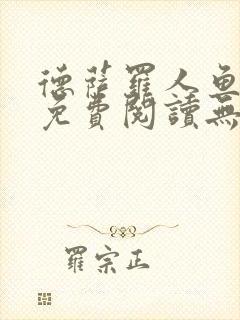 德薩羅人魚
免費閱讀無
羅宗正